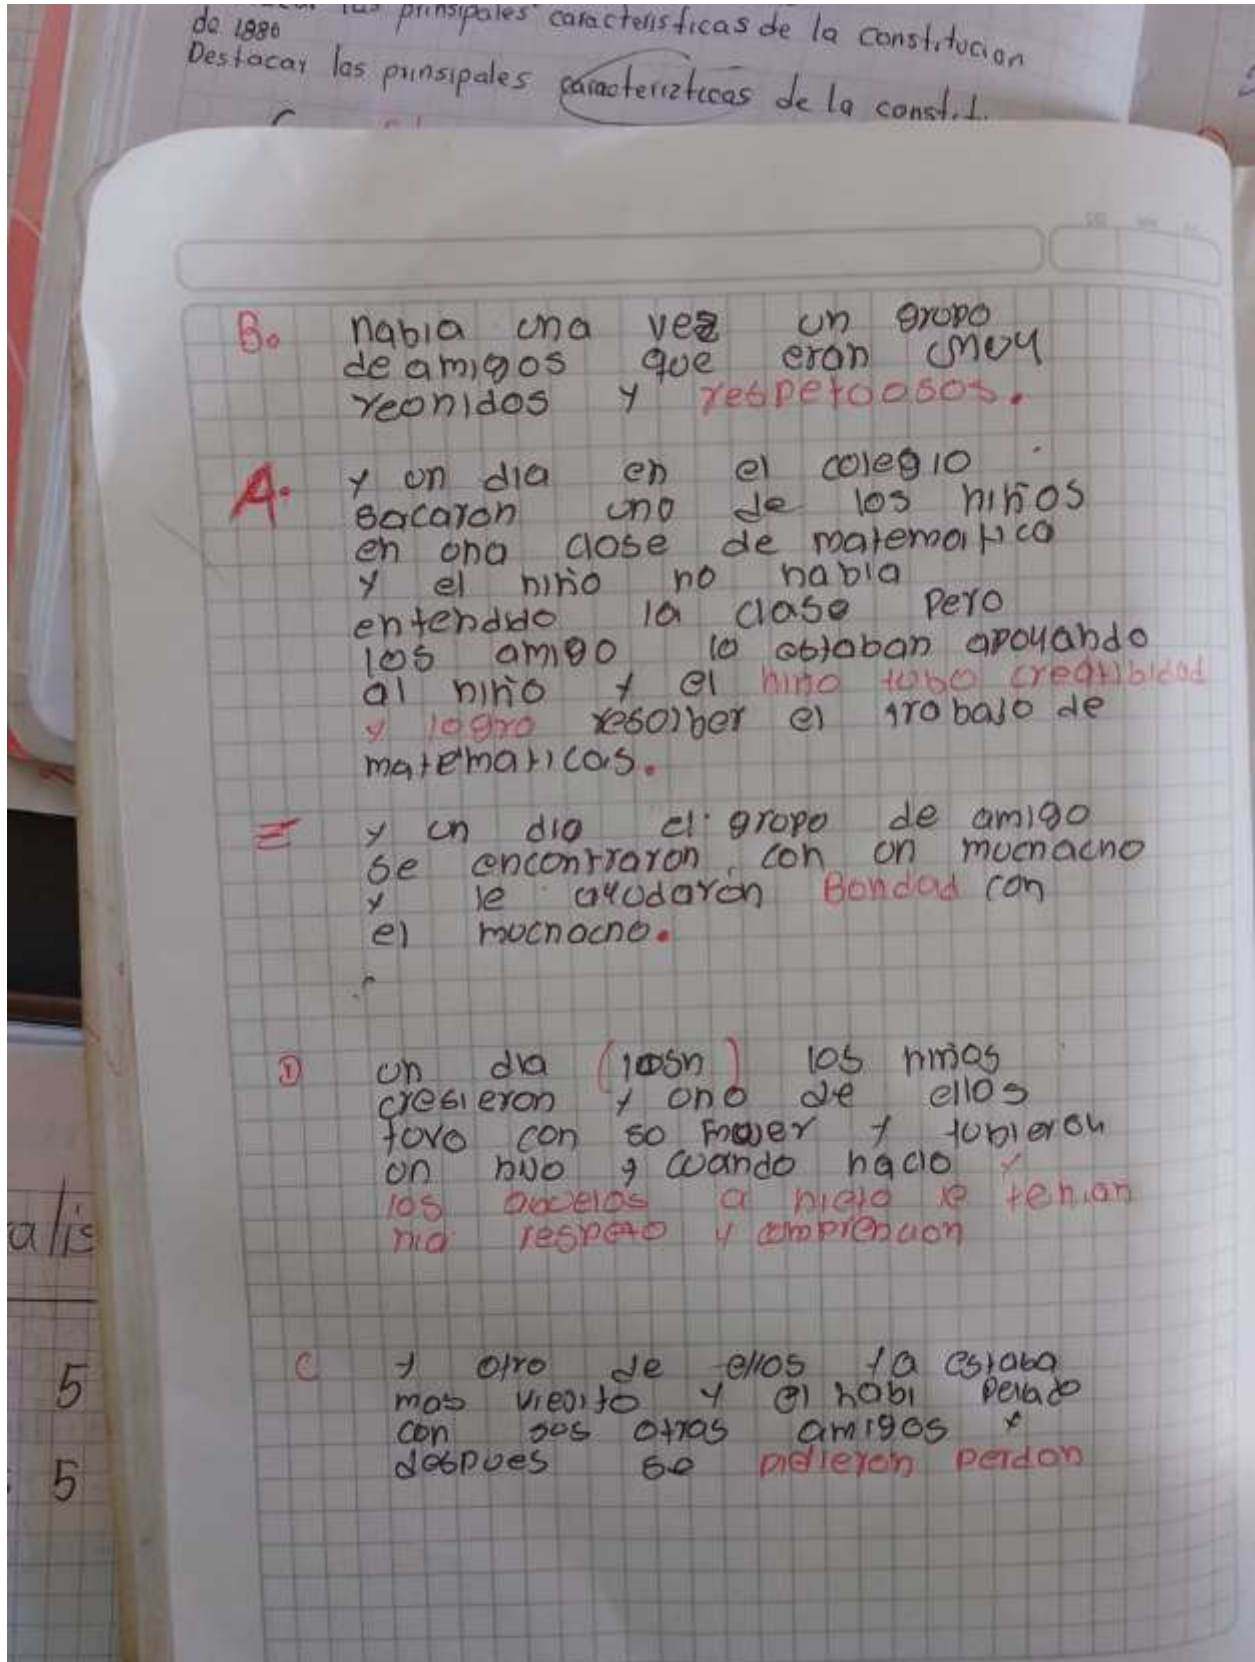 las prinsipales caracteristicas de la constitucion
de 1886
Destacar las prinsipales caracterizticas de la constit.
B. habia una vez un grupo
de amigos que eran muy
reunidos y respetuosos.
A. y un dia en el colegio
sacaron uno de los niños
en una clase de matematica
y el niño no habia
entendido la clase pero
los amigo lo estaban apoyando
al niño y el niño tubo creatibidad
y logro resolber el trabajo de
matematicas.
E y un dia el grupo de amigo
se encontraron con un muchacho
y le ayudaron Bondad con
el muchacho.
D un dia ( ) los niños
cresieron y uno de ellos
tuvo con su mujer y tubieron
un hijo y cuando nacio y
los abuelos a nieto le tenian
respeto y comprencion
C y otro de ellos ya estaba
mas viejito y el habi peliado
con sus otras amigos y
despues se pidieron perdon
alis
5
5